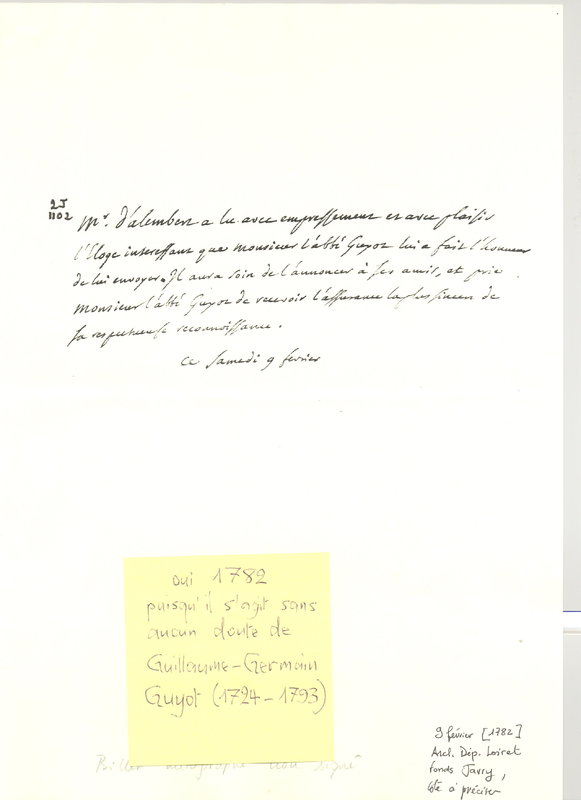 2J
1102
Mr. d'alembert a lu avec empressement et avec plaisir
l'Eloge interessant que Monsieur l'abbé Guyot lui a fait l'honneur
de lui envoyer. Il aura soin de l'annoncer à ses amis, et prie
Monsieur l'abbé Guyot de recevoir l'assurance la plus sincere de
sa respectueuse reconnoissance.
ce samedi 9 fevrier
oui 1782
puisqu'il s'agit sans
aucun doute de
Guillaume-Germain
Guyot (1724-1793)
Billet autographe non signé
9 février [1782]
Arch. Dép. Loiret
fonds Jarry,
côte à préciser